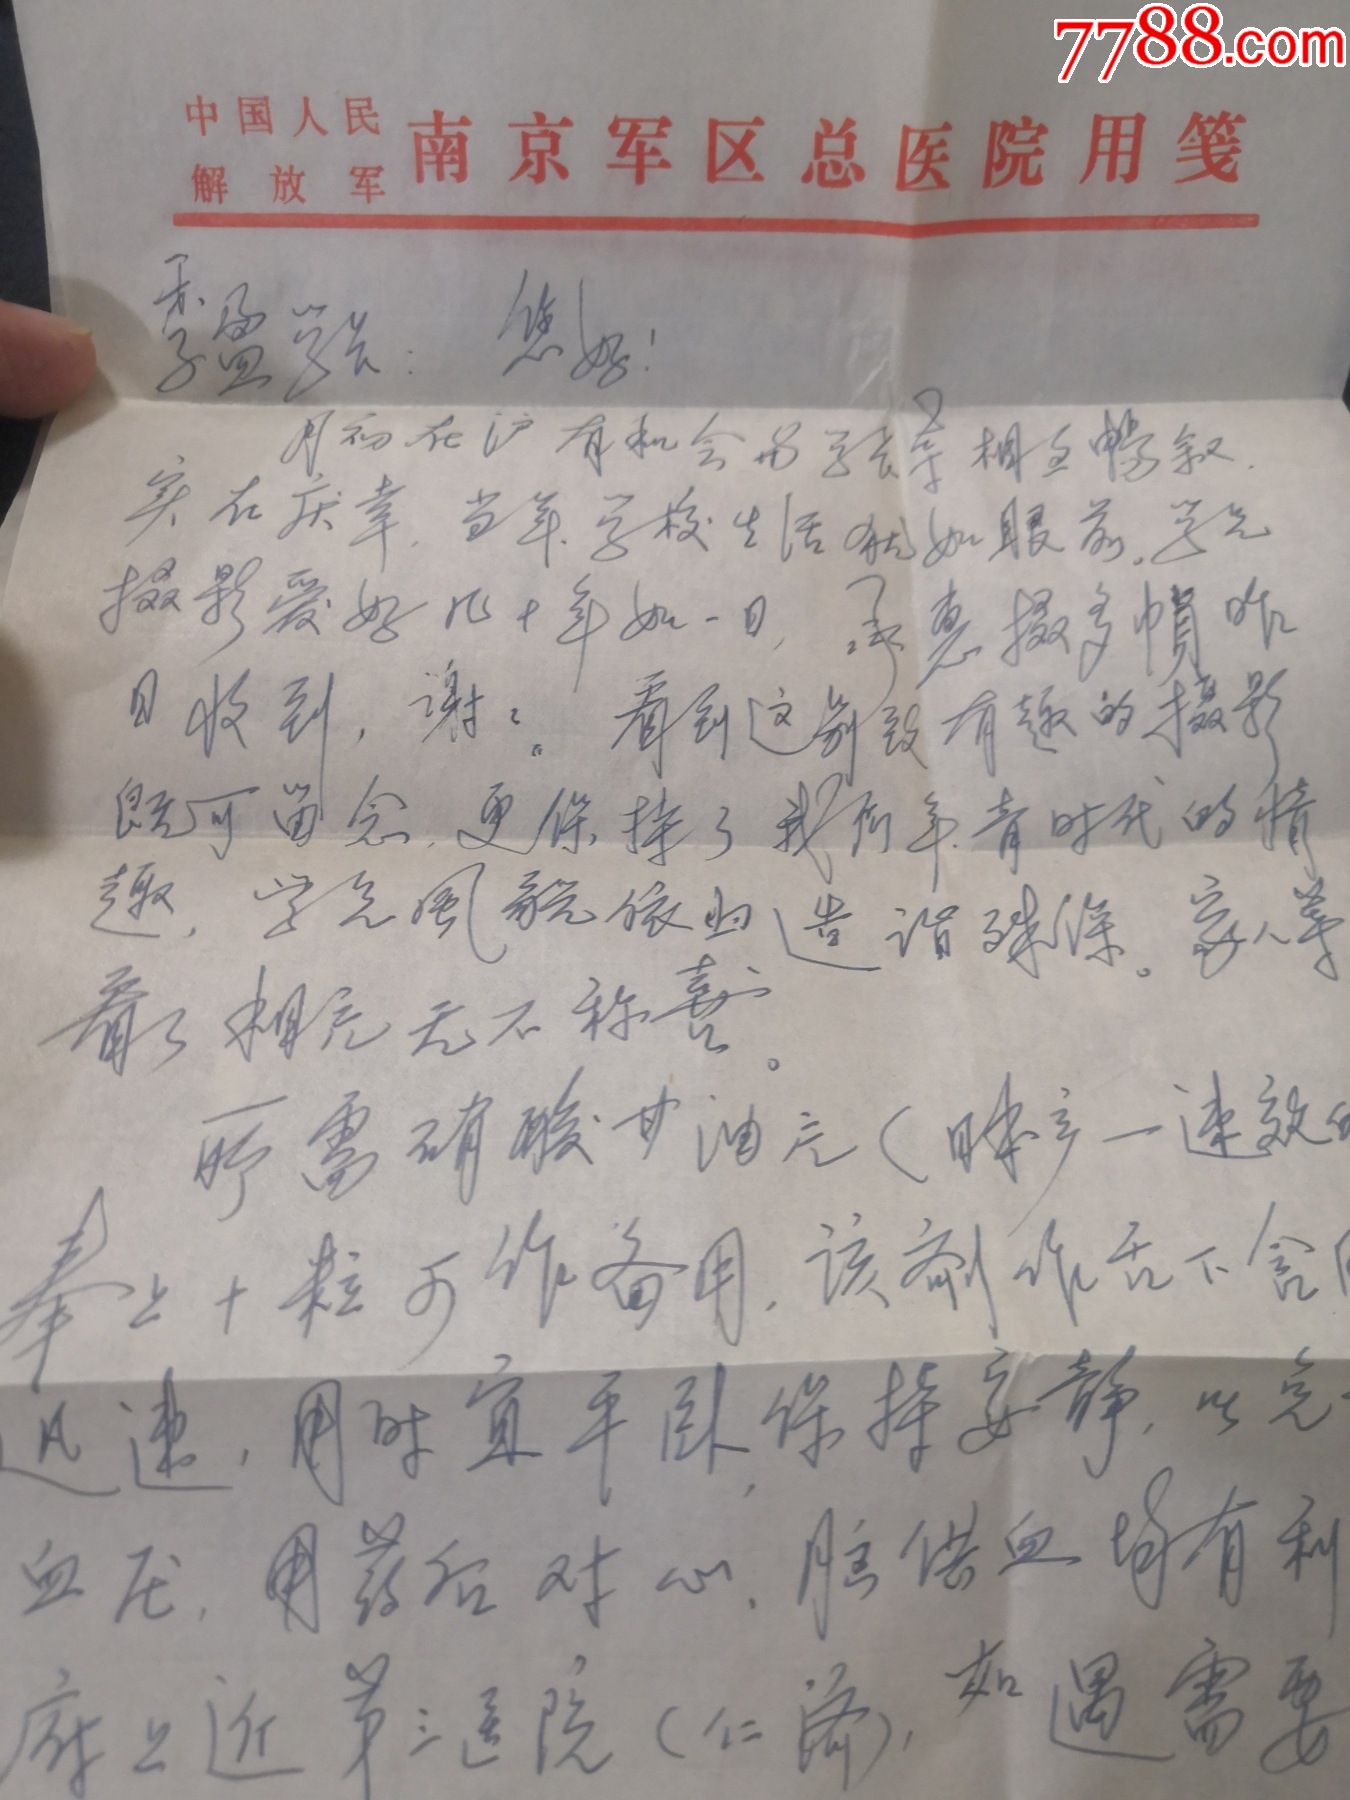 7788.com
中国人民
解放军 南京军区总医院用笺
季盈学长：您好！
月初在沪有机会与学长等相互畅叙，
实在庆幸，当年学校生活就如眼前。学兄
摄影爱好几十年如一日，承惠摄多帧昨
日收到，谢：。看到这别致有趣的摄影
既可留念，更保持了我们年青时代的情
趣，学兄风貌依旧造诣殊深。家人等
看了相片无不称喜。
所需硝酸甘油片（
速效
奉上十粒可作备用，该剂作舌下含
迅速，用时宜平卧，保持安静，以免
血压，用药后对心、脑供血均有利
府上近第三医院（仁济），如遇需要